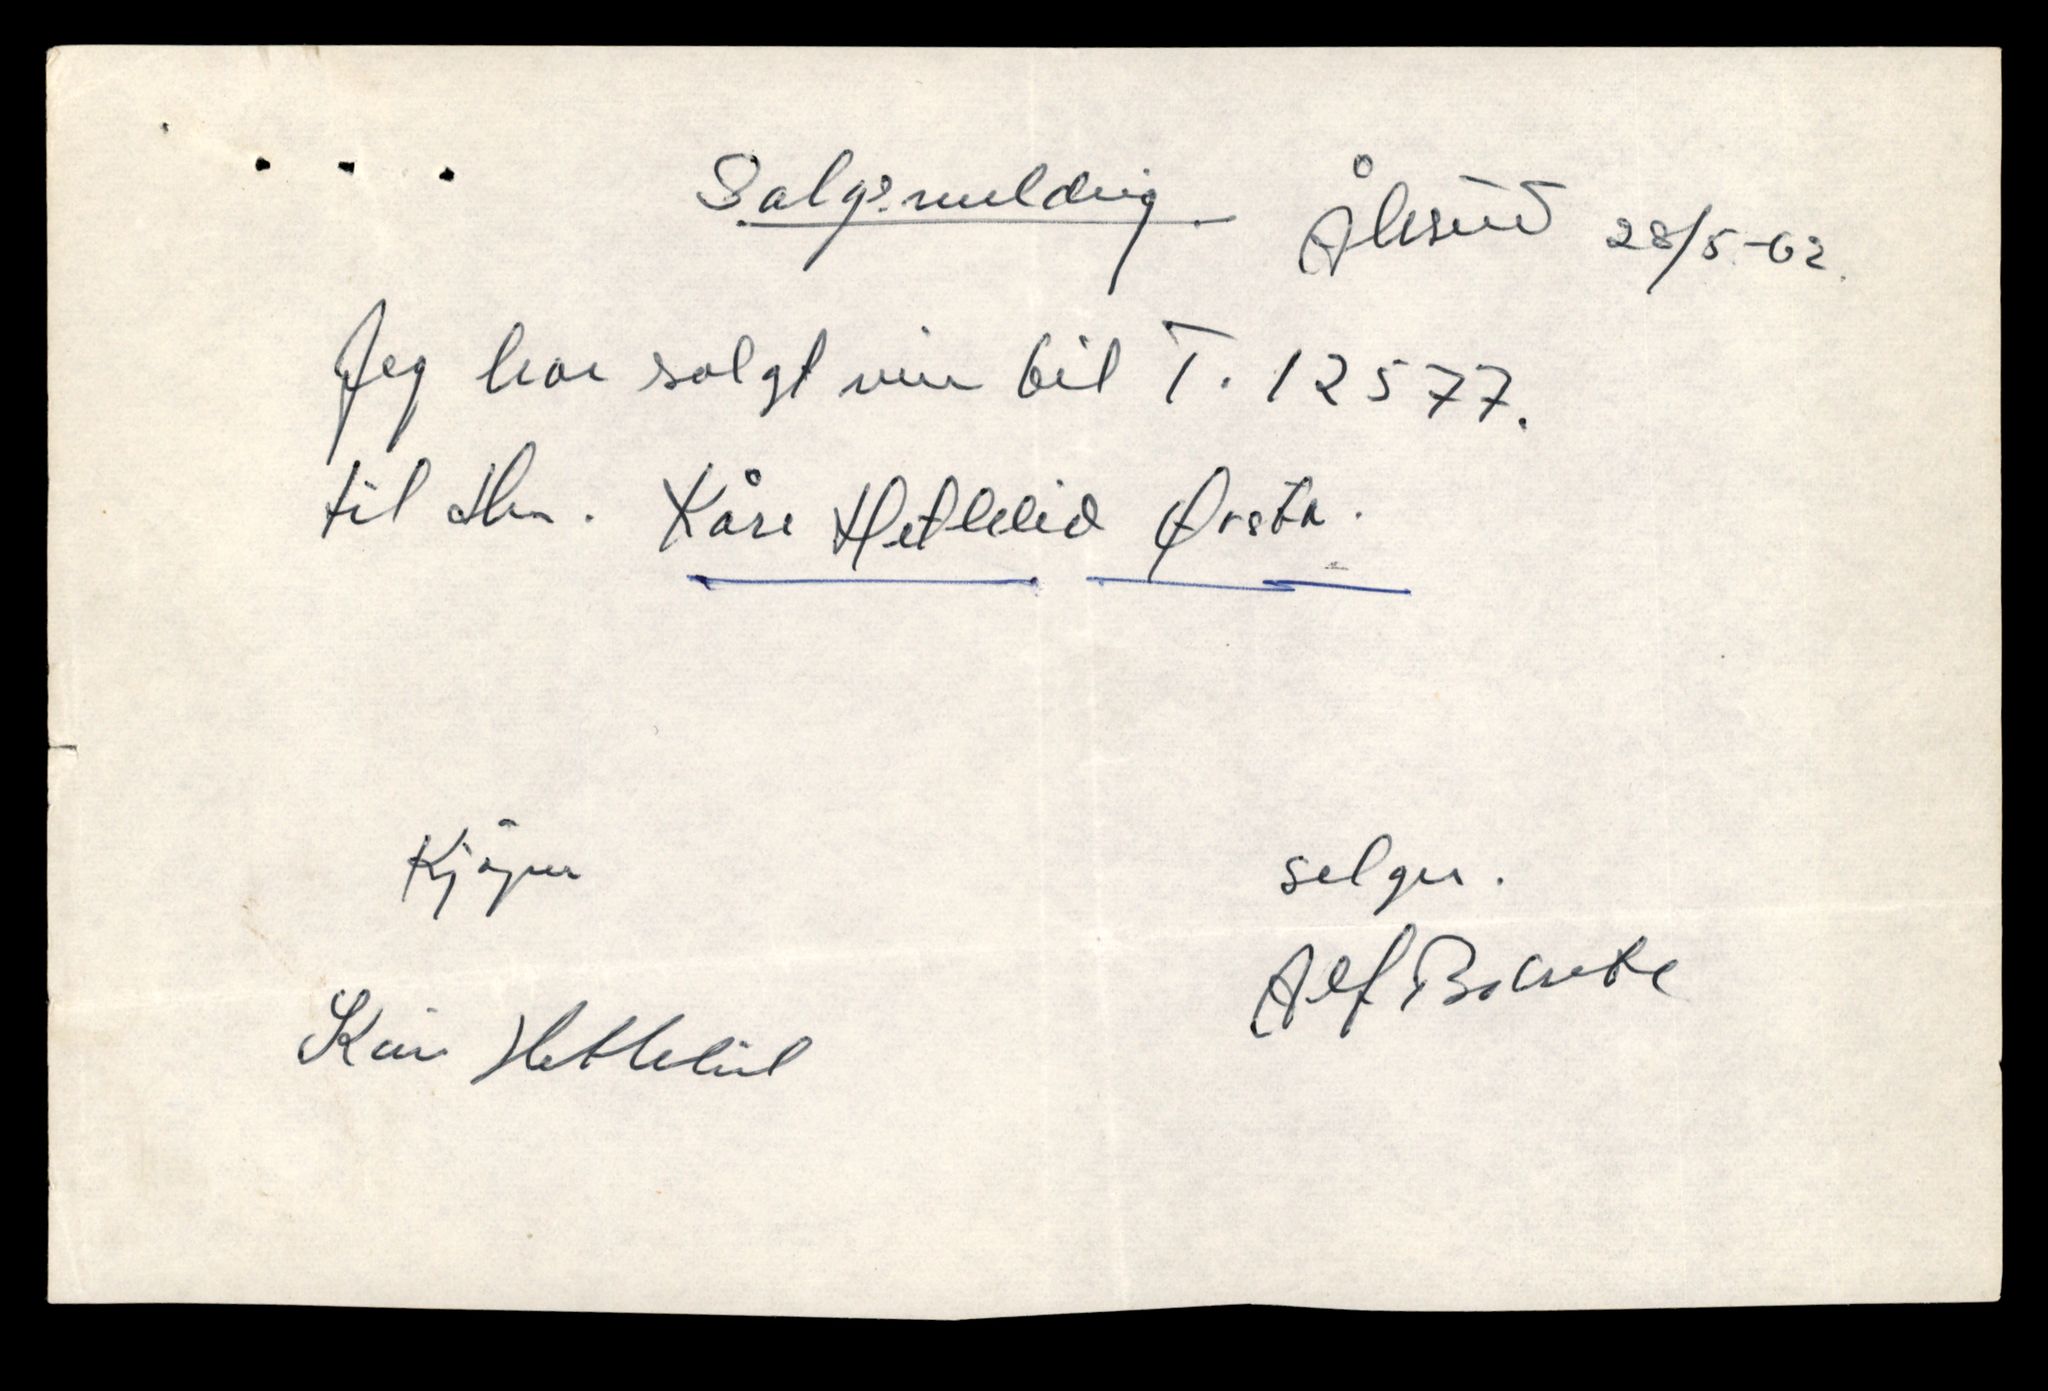 Salgsmelding Ålesund 28/5-62.
Jeg har solgt min bil T. 12577.
til Hr. Kåre Hetlelid Ørsta.
Kjøper selger.
Alf
Kåre Hetlelid